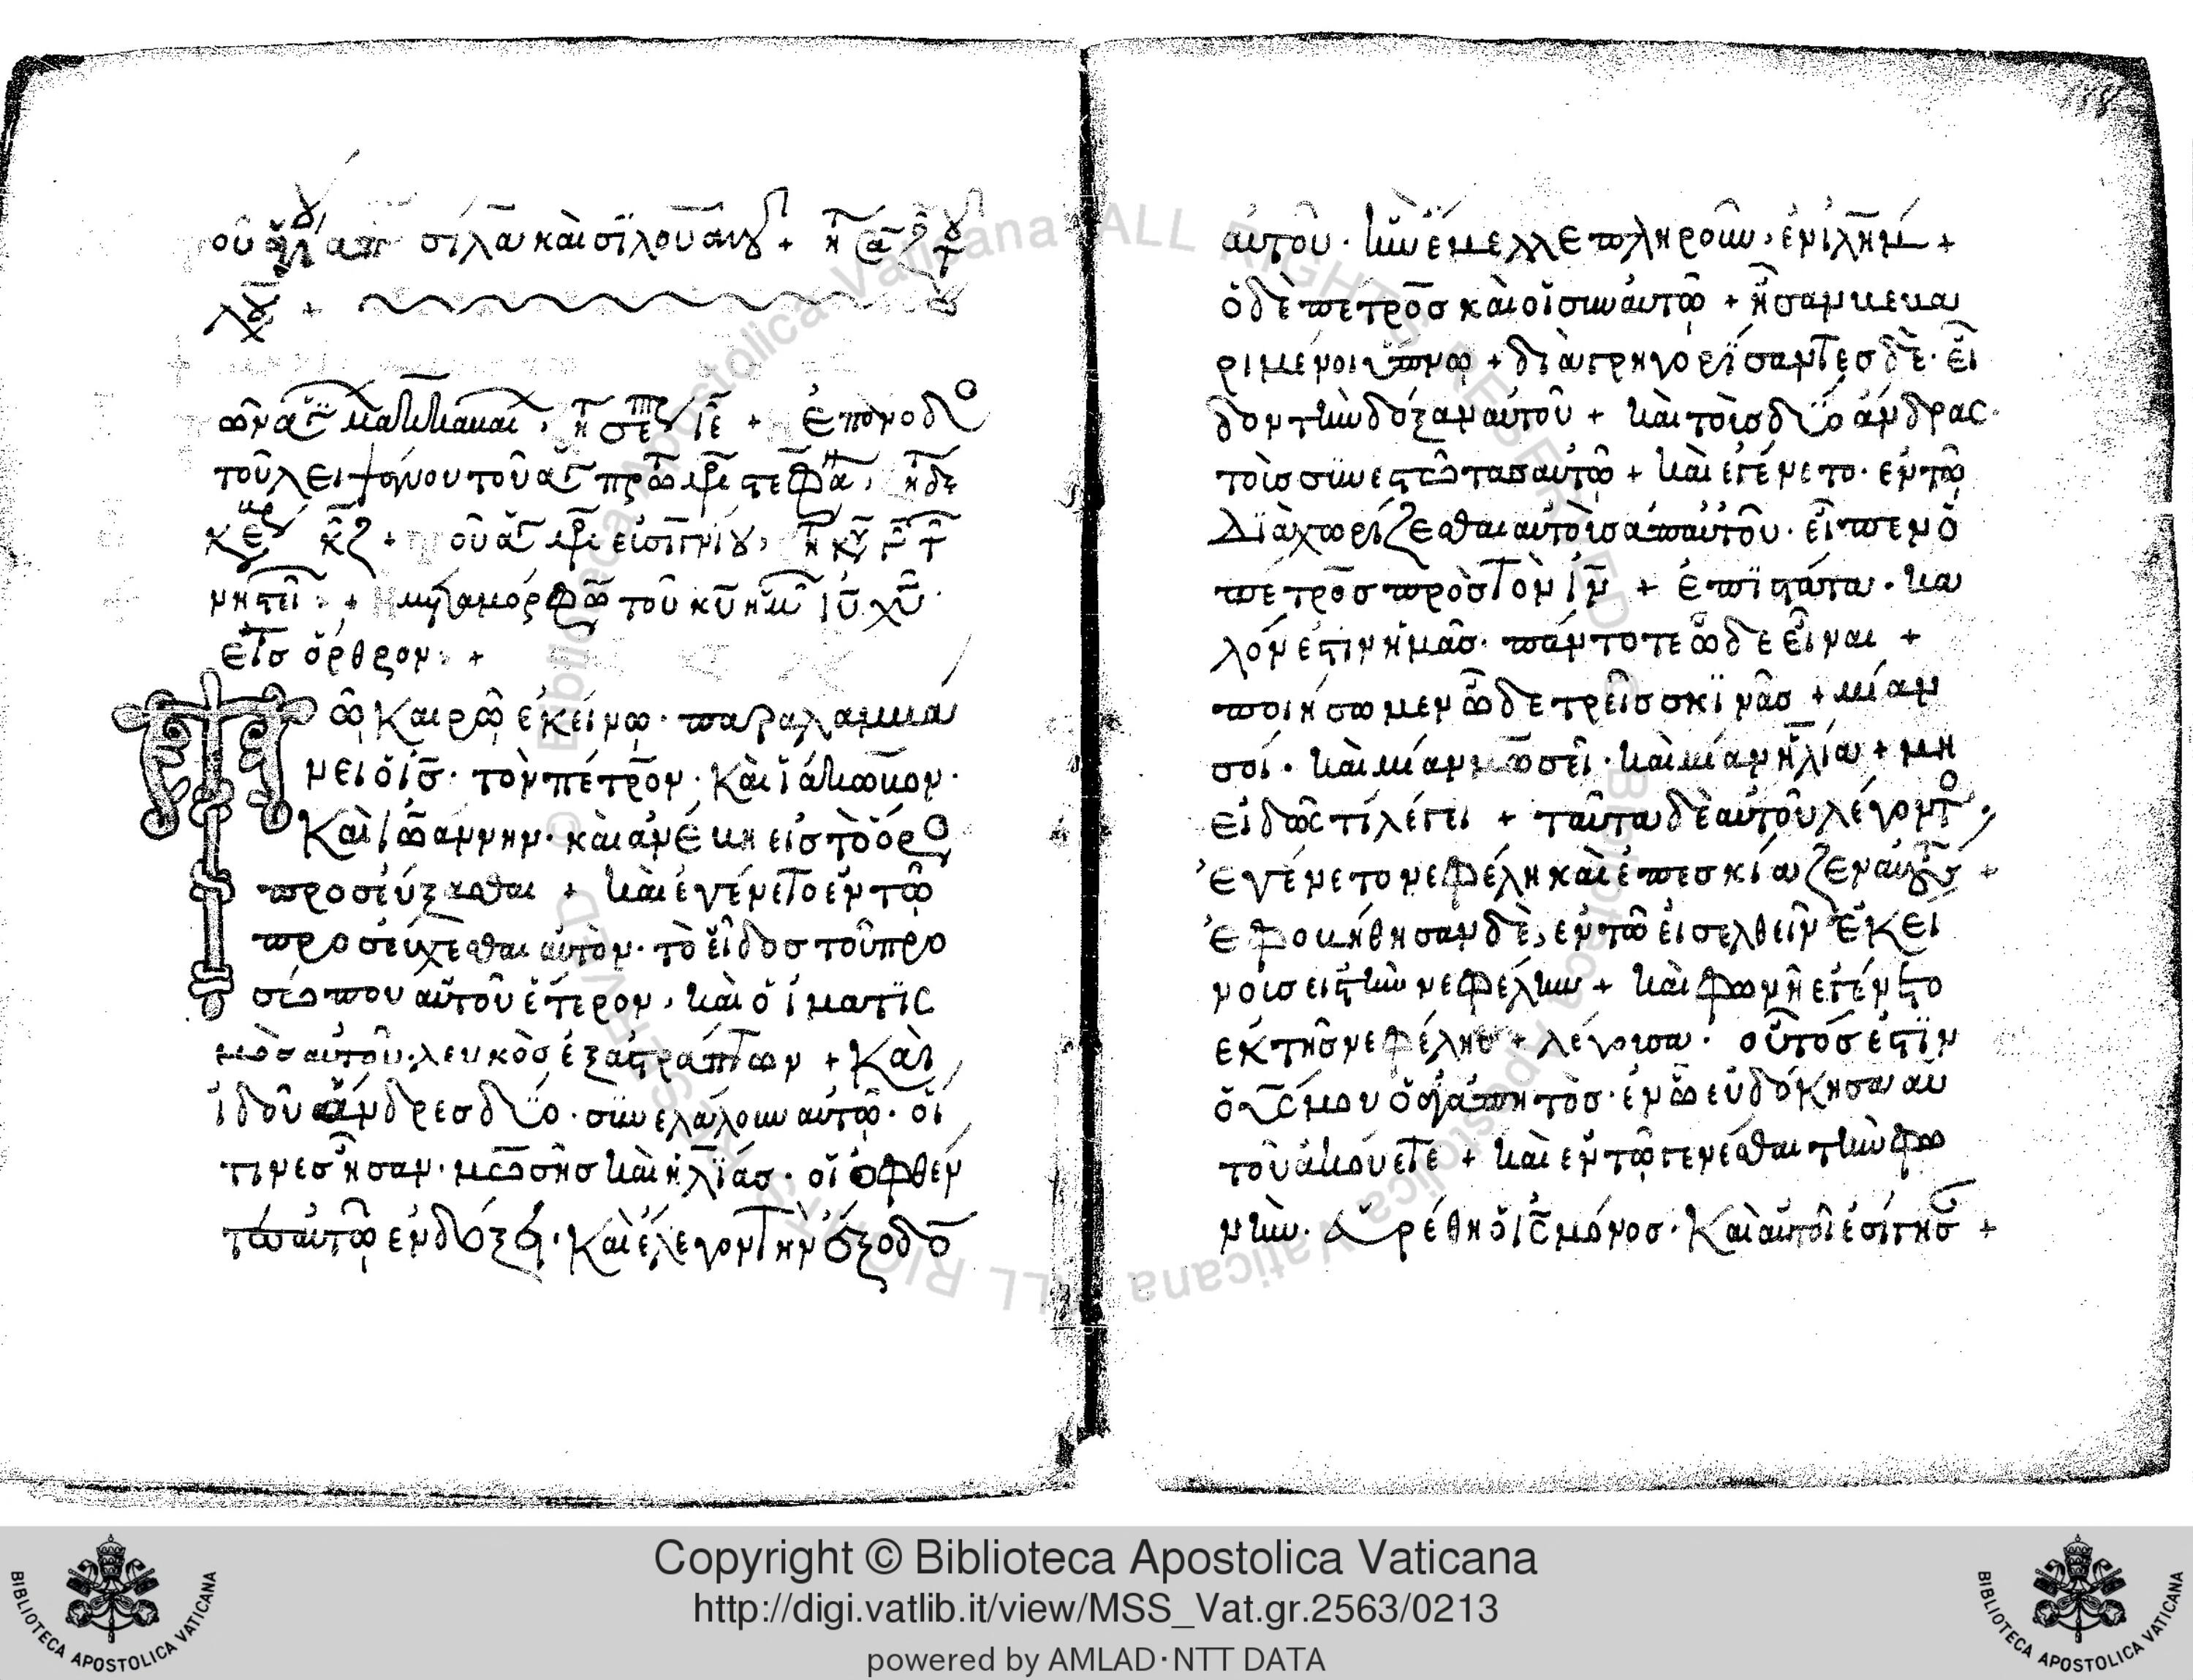 σίλα καὶ σϊλουανοῦ +
ἐπάνοδο
τοῦ λειψάνου τοῦ ἁγ πρω
μεταμόρφω τοῦ κυ ἡμ ιυ χυ
εἰσ ὄρθρον +
Τῶ καιρῶ ἐκείνω· παραλαμμά
νει ὁ ισ· τὸν πέτρον· καὶ ϊάκωκον·
καὶ ϊωάννην· καὶ ἀνέκη εἰσ τὸ ὄρο
προσεύξασθαι + καὶ ἐγένετο ἐν τῶ
προσεύχεσθαι αὐτὸν· τὸ εἶδοσ τοῦ προ
σώπου αὐτοῦ ἕτερον, καὶ ὁ ἱματϊσ
μὸσ αὐτοῦ· λευκὸσ ἐξαστράπτων + Καὶ
ἰδοῦ ἄνδρεσ δϋο· σϋνελάλουν αὐτῶ· οἵ
τινεσ ἦσαν· μωσῆσ καὶ ἡλϊάσ· οἱ ὀφθέν
τεσ αὐτῶ ἐν δόξη· Καὶ ἔλεγον τὴν ἔξοδο
αὐτοῦ· ἣν ἔμελλε πληροῦν, ἐν ϊλημ +
ὁ δὲ πέτροσ καὶ οἱ σὺν αὐτῶ + ἦσαν κεκα
ριμένοι ὕπνω + διαγρηγορϊσαντεσ δὲ· εἶ
δον τὴν δόξαν αὐτοῦ + καὶ τοὶσ δϋο ἄνδρας·
τοὶσ σϋνεστῶτασ αὐτῶ + καὶ ἐγένετο· ἐν τῶ
Διὰχωρίζεσθαι αὐτοὶσ ἀπ αὐτοῦ· εἶπεν ὁ
πέτροσ πρὸσ τὸν ιν + ἐπϊστάτα· κα
λόν ἐστιν ἡμᾶσ· πάντοτε ὧδε εἶναι +
ποιήσωμεν ὧδε τρεῖσ σκϊνᾶσ + μίαν
σοί· καὶ μίαν μωσεῖ· καὶ μίαν ἡλία + μη
εἰδῶς τί λέγει + ταῦτα δὲ αὐτοῦ λέγοντο
Ἐγένετο νεφέλη καὶ ἐπεσκίαζεν αὐτοὺσ +
Ἐφοκήθησαν δὲ, ἐν τῶ εἰσελθεῖν Ἐκεί
νοισ εισ τὴν νεφέλην + καὶ φωνῆ ἐγένετο
ἐκ τῆσ νεφέλησ + λέγοισα· οὗτόσ ἐστϊν
ὁ υς μου ὁ ἀγάπητὸσ· ἐν ὧ εὐδόκησα αὐ
τοῦ ἀκούετε + καὶ ἐν τῶ γενέσθαι τὴν φω
νὴν· εὑρέθη ὁ ις μόνοσ· Καὶ αὐτοὶ ἐσίγησ +
Copyright © Biblioteca Apostolica Vaticana
http://digi.vatlib.it/view/MSS_Vat.gr.2563/0213
powered by AMLAD·NTT DATA
BIBLIOTECA APOSTOLICA VATICANA
BIBLIOTECA APOSTOLICA VATICANA